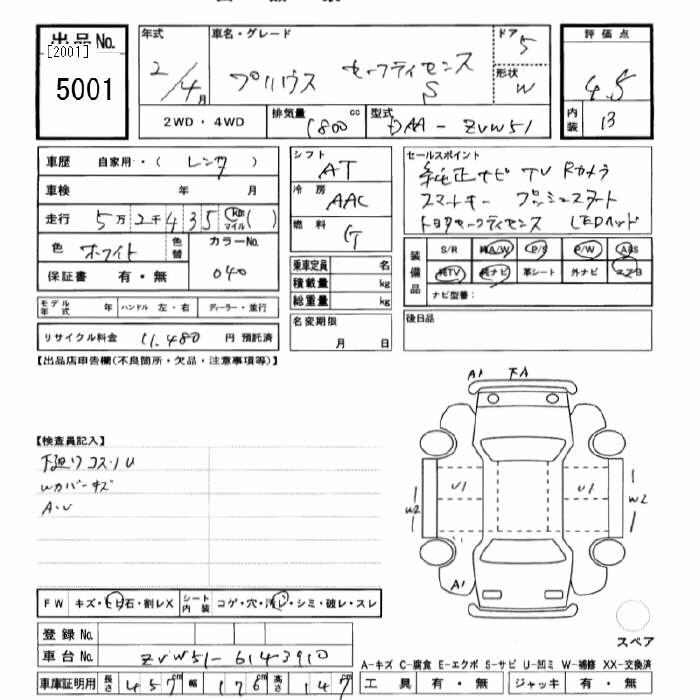 出品No.
[2001]
5001
年式
2/4月
車名・グレード
プリウス セーフティセンス
S
ドア 5
形状 W
評価点
4.5
内装 B
2WD・4WD
排気量 1800 cc
型式 DAA-ZVW51
車歴 自家用・( レンタ )
車検 年 月
走行 5万2千435 km マイル ( )
色 ホワイト 色替
カラーNo.
040
保証書 有・無
シフト AT
冷房 AAC
燃料 G
乗車定員 名
積載量 kg
総重量 kg
セールスポイント
純正ナビ TV Rカメラ
スマートキー プッシュスタート
トヨタセーフティセンス LEDヘッド
装備品
S/R 純A/W P/S P/W ABS
純TV 純ナビ 革シート 外ナビ エアB
ナビ型番:
モデル年式 年 ハンドル 左・右 ディーラー・並行
名変期限
月 日
後日品
リサイクル料金 11,480 円 預託済
【出品店申告欄(不良箇所・欠品・注意事項等)】
A1
U1 U1
W2 W2
A1
【検査員記入】
下廻りコスリU
Wカバーキズ
A・U
FW キズ・ヒ石・割レX シート内装 コゲ・穴・汚レ・シミ・破レ・スレ
登録No.
車台No. ZVW51-6143910
車庫証明用 長さ 457m 幅 176m 高さ 147m
スペア
A-キズ C-腐食 E-エクボ S-サビ U-凹ミ W-補修 XX-交換済
工具 有・無 ジャッキ 有・無